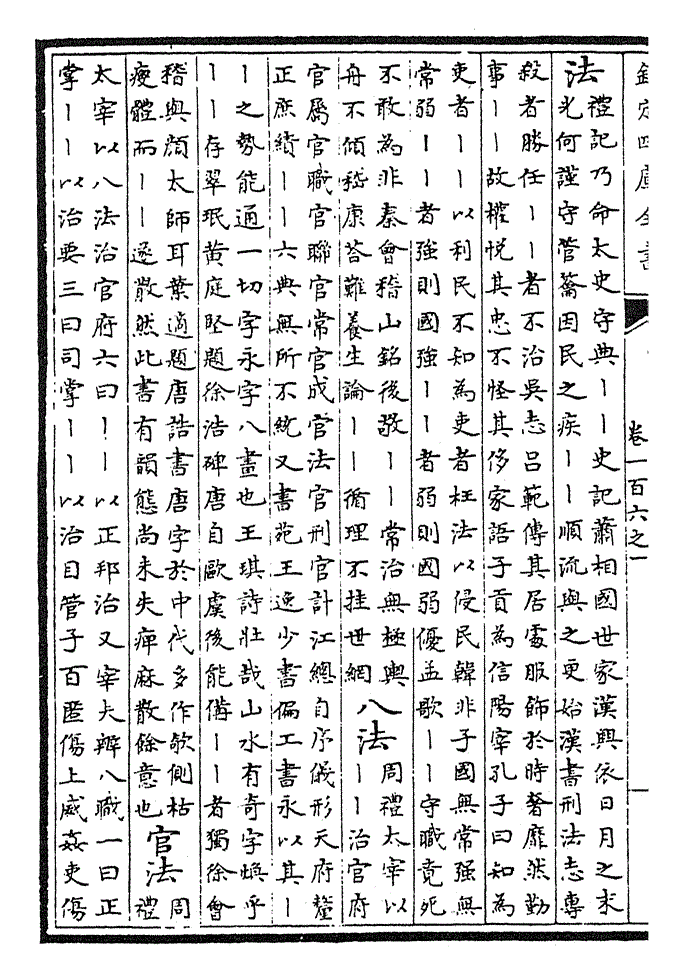 欽定四庫全書
卷一百六之一
法
禮記乃命太史守典——史記蕭相國世家漢興依日月之末
光何謹守管籥因民之疾——順流與之更始漢書刑法志專
殺者勝任——者不治吳志呂範傳其居處服飾於時奢靡然勤
事——故權悦其忠不怪其侈家語子貢為信陽宰孔子曰知為
吏者——以利民不知為吏者枉法以侵民韓非子國無常强無
常弱——者強則國強——者弱則國弱優孟歌——守職竟死
不敢為非秦會稽山銘後敬——常治無極輿
舟不傾嵇康答難養生論——循理不挂世網
八法
周禮太宰以
——治官府
官屬官職官聯官常官成官法官刑官計江總自序儀形天府釐
正庶績——六典無所不統又書苑王逸少書偏工書永以其—
—之勢能通一切字永字八畫也王琪詩壯哉山水有奇字煥乎
——存翠珉黄庭堅題徐浩碑唐自歐虞後能備——者獨徐會
稽與顔太師耳葉適題唐誥書唐字於中代多作欹側枯
瘦體而——遂散然此書有韻態尚未失痺麻散餘意也
官法
周
禮
太宰以八法治官府六曰——以正邦治又宰夫辨八職一曰正
掌——以治要三曰司掌——以治目管子百匿傷上威姦吏傷